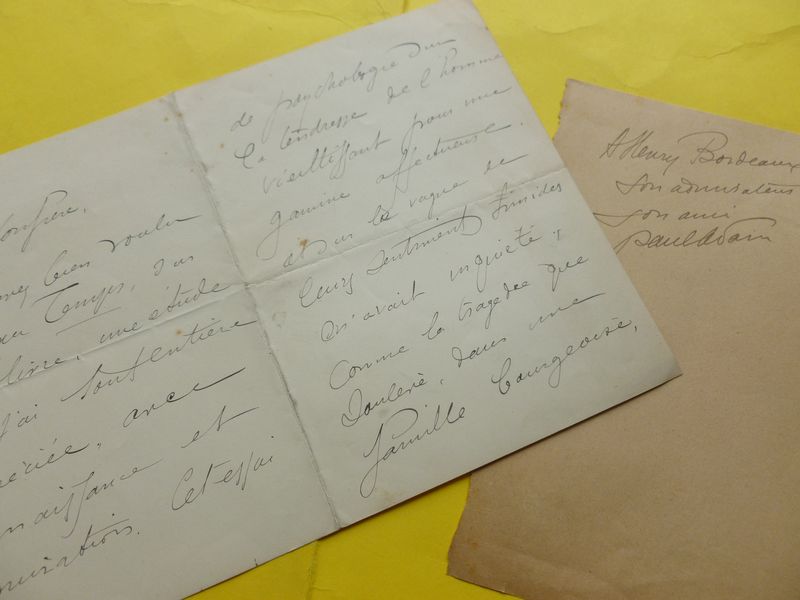 onfrère,
bien voulu
au Temps, sur
livre, une étude
j'ai tout entière
éciée, avec
naissance et
miration. Cet essai
de psychologie sur
la tendresse de l'homme
vieillissant pour une
gamine affectueuse.
et sur le vague de
leurs sentiments timides
m'avait inquiété,
comme la tragédie que
dans une
famille bourgeoise,
A Henry Bordeaux
son admirateur
son ami
Paul Adam